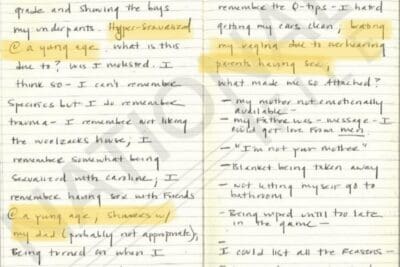 grade and showing the boys
my underpants. Hyper-sexualized
@ a young age. What is this
due to? Was I molested. I
think so - I can't remember
specifics but I do remember
trauma - I remember not liking
the woolzacks house; I
remember somewhat being
sexualized with Caroline; I
remember having sex with friends
@ a young age; showers w/
my dad (probably not appropriate);
Being turned on when I
remember the Q-tips - I hated
getting my ears clean;
my vagina due to overhearing
parents having sex;
what made me so attached?
- my mother not emotionally
available -
- my father was - message - I
could get love from men
- "I'm not your mother"
- Blanket being taken away
- not letting myself go to
bathroom
- Being wiped until too late
in the game -
-
I could list all the reasons -
NATIONAL